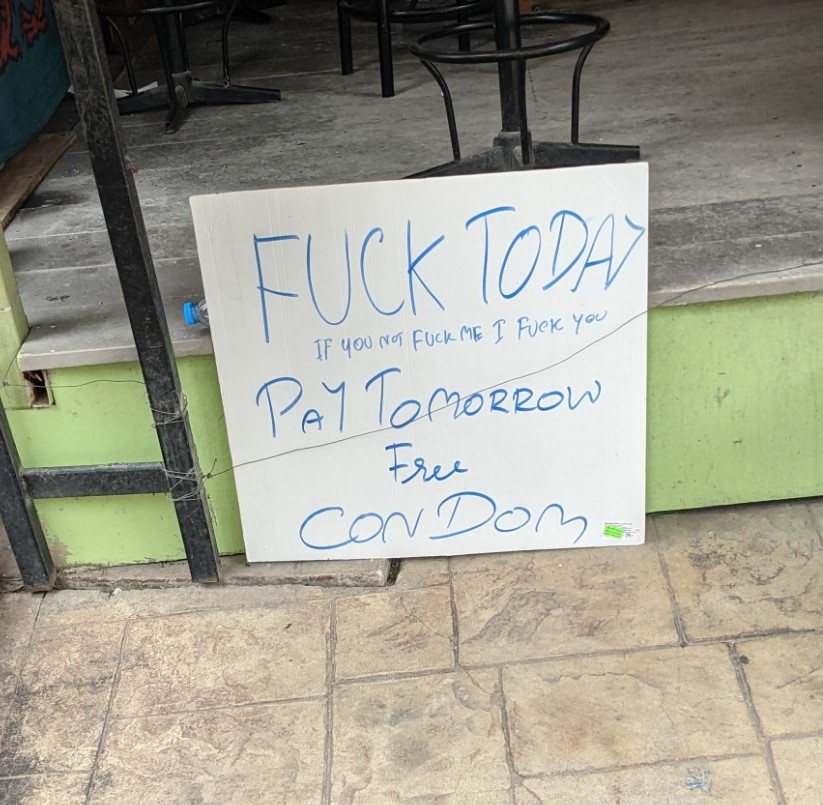 FUCK TODAY
IF YOU NOT FUCK ME I FUCK YOU
PAY TOMORROW
Free
CONDOM